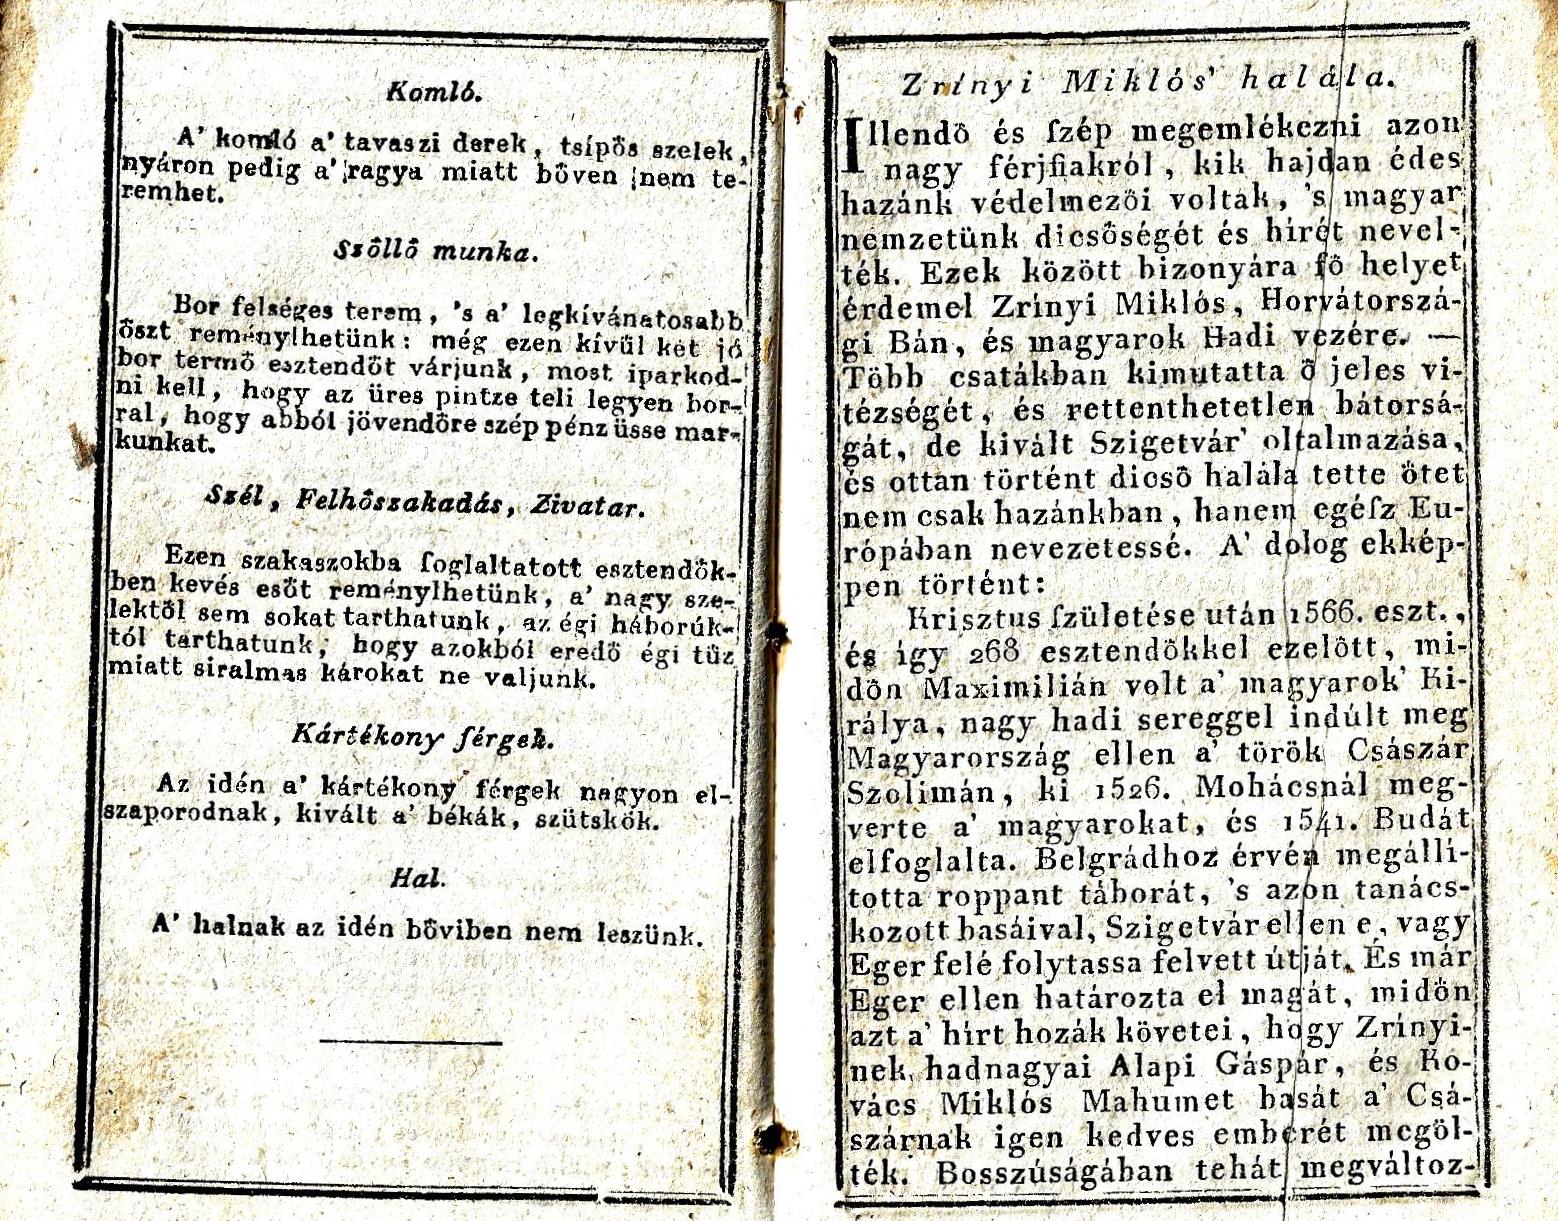 Komló.
A' komló a' tavaszi derek, tsípős szelek,
nyáron pedig a' ragya miatt bőven nem te-
remhet.
Szőllő munka.
Bor felséges terem, 's a' legkívánatosabb
őszt reménylhetünk: még ezen kívül két jó
bor termő esztendőt várjunk, most iparkod-
ni kell, hogy az üres pintze teli legyen bor-
ral, hogy abból jövendőre szép pénz üsse mar-
kunkat.
Szél, Felhőszakadás, Zivatar.
Ezen szakaszokba foglaltatott esztendők-
ben kevés esőt reménylhetünk, a' nagy sze-
lektől sem sokat tarthatunk, az égi háborúk-
tól tarthatunk, hogy azokból eredő égi tűz
miatt siralmas károkat ne valjunk.
Kártékony férgek.
Az idén a' kártékony férgek nagyon el-
szaporodnak, kivált a' békák, szütskök.
Hal.
A' halnak az idén bőviben nem leszünk.
Zrínyi Miklós' halála.
Illendő és ſzép megemlékezni azon
nagy férjfiakról, kik hajdan édes
hazánk védelmezői voltak, 's magyar
nemzetünk dicsőségét és hírét nevel-
ték. Ezek között bizonyára fő helyet
érdemel Zrínyi Miklós, Horvátorszá-
gi Bán, és magyarok Hadi vezére. —
Több csatákban kimutatta ő jeles vi-
tézségét, és rettenthetetlen bátorsá-
gát, de kivált Szigetvár' oltalmazása,
és ottan történt dicső halála tette őtet
nem csak hazánkban, hanem egéſz Eu-
rópában nevezetessé. A' dolog ekkép-
pen történt:
Krisztus ſzületése után 1566. eszt.,
és így 268 esztendőkkel ezelőtt, mi-
dőn Maximilián volt a' magyarok' Ki-
rálya, nagy hadi sereggel indúlt meg
Magyarország ellen a' török Császár
Szolimán, ki 1526. Mohácsnál meg-
verte a' magyarokat, és 1541. Budát
elfoglalta. Belgrádhoz érvén megállí-
totta roppant táborát, 's azon tanács-
kozott basáival, Szigetvár ellen e, vagy
Eger felé folytassa felvett útját. És már
Eger ellen határozta el magát, midőn
azt a' hírt hozák követei, hogy Zrínyi-
nek hadnagyai Alapi Gáspár, és Ko-
vács Miklós Mahumet basát a' Csá-
szárnak igen kedves emberét megöl-
ték. Bosszúságában tehát megváltoz-